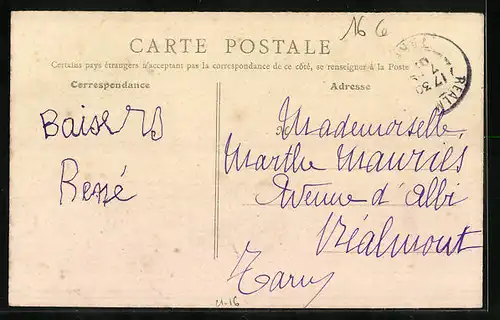 166
CARTE POSTALE
Certains pays étrangers n'acceptant pas la correspondance de ce côté, se renseigner à la Poste
Correspondance
Adresse
Baisers
René
Mademoiselle,
Marthe Mauriès
Avenue d'Albi
Réalmont
Tarn
17 30
REALM
11-16